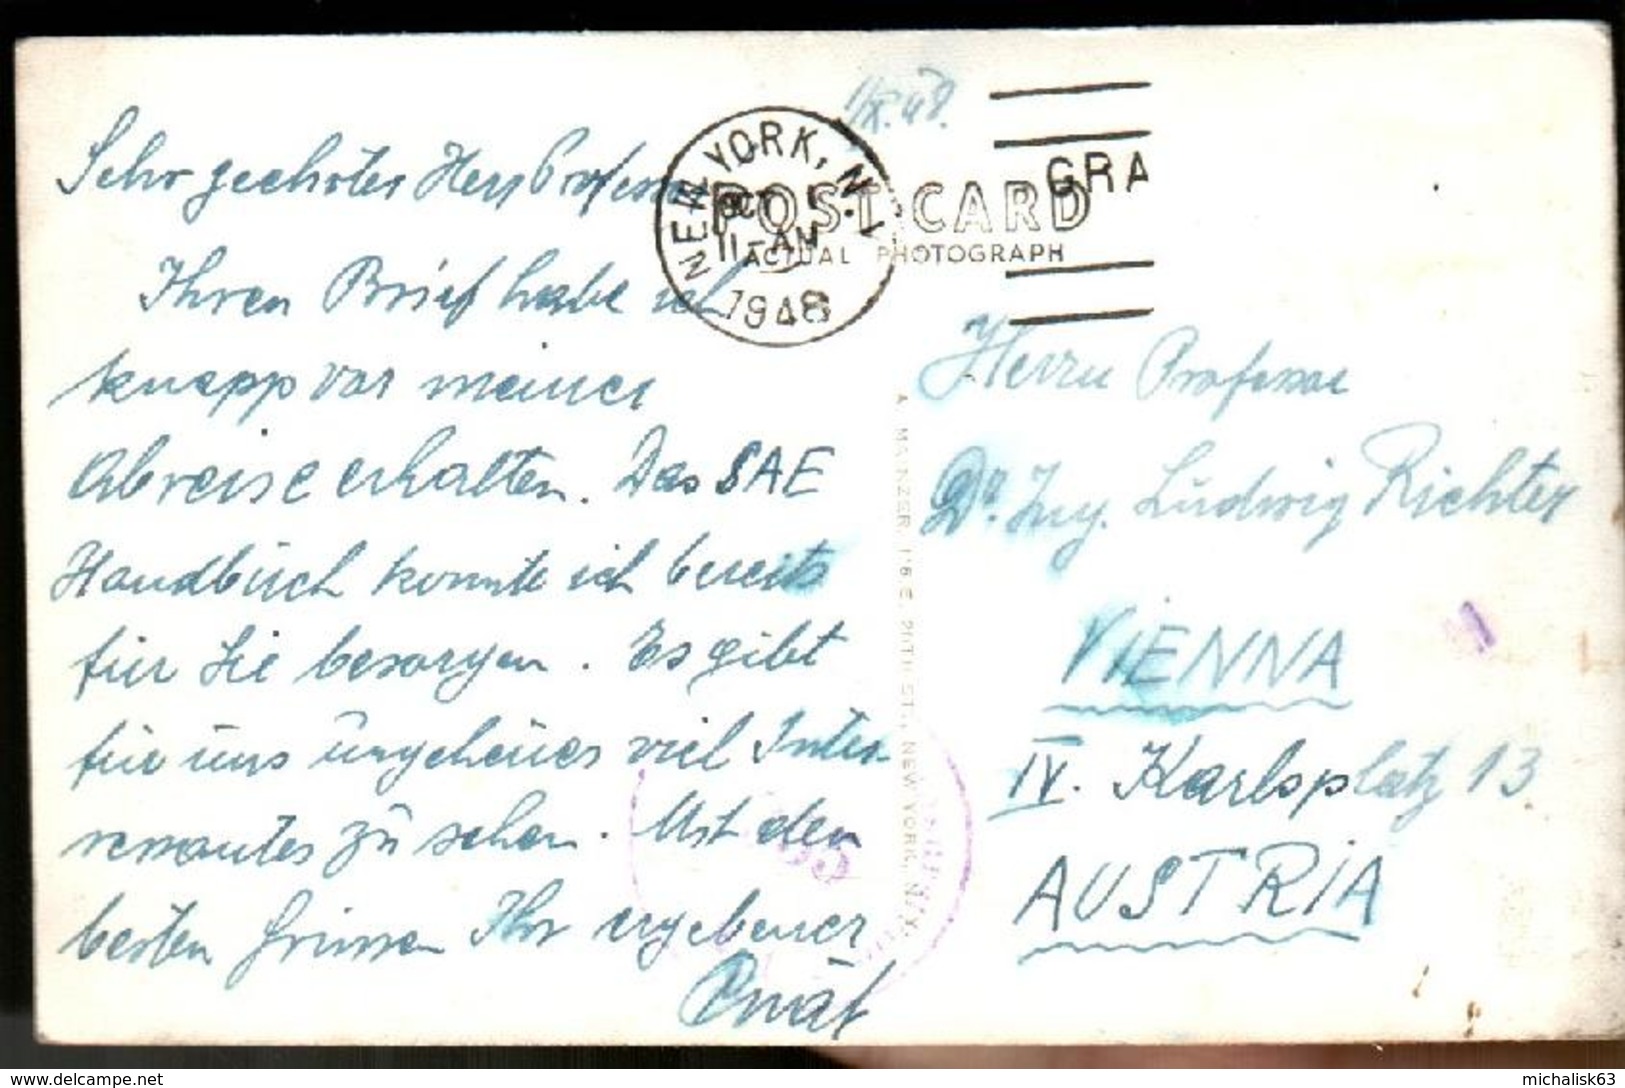 1/X.48.
Sehr geehrter Herr Professor
Ihren Brief habe ich
knapp vor meiner
Abreise erhalten. Das SAE
Handbuch konnte ich bereits
für Sie besorgen. Es gibt
für uns ungeheuer viel Inter-
ressantes zu sehen. Mit den
besten Grüssen Ihr ergebener
NEW YORK, N.Y.
OCT 1
11-AM
1948
GRA
POST CARD
ACTUAL PHOTOGRAPH
A. MAINZER, 118 E. 28TH ST., NEW YORK, N.Y.
Herrn Professor
Dr. Ing. Ludwig Richter
VIENNA
IV. Karlsplatz 13
AUSTRIA
www.delcampe.net
michalisk63